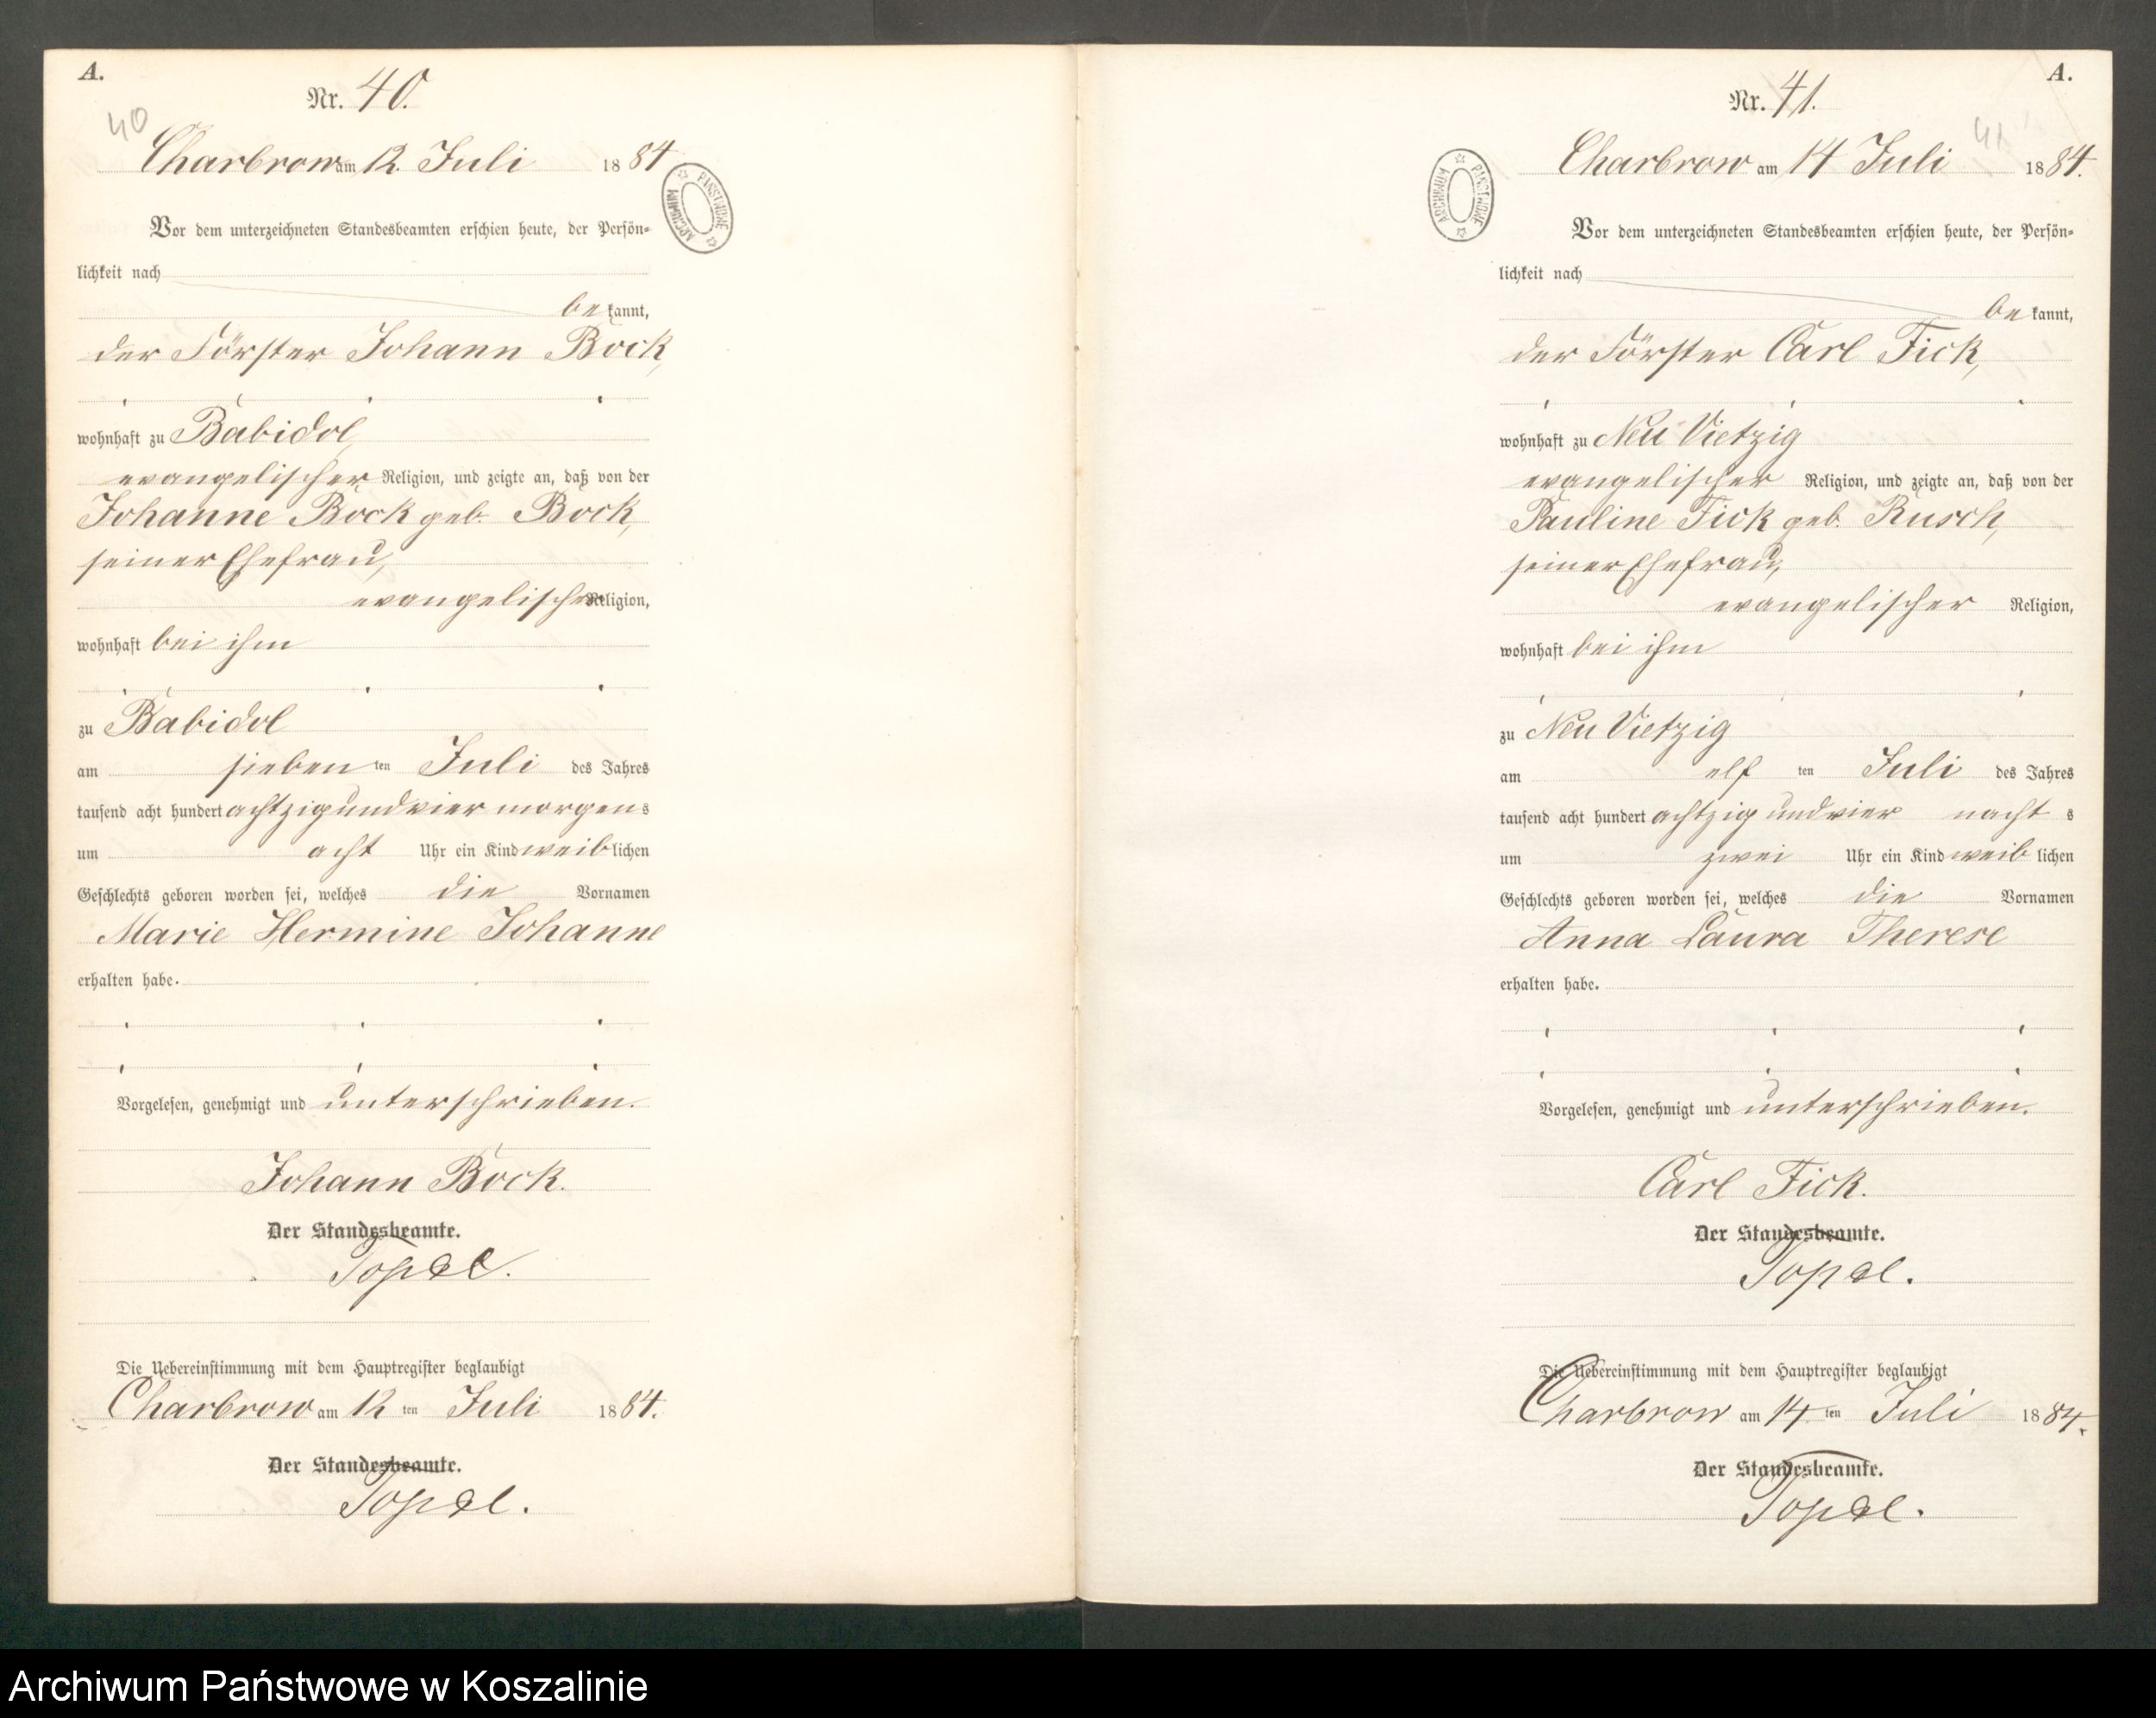 A.
Nr. 40.
40
Charbrow am 12. Juli 1884
ARCHIWUM PAŃSTWOWE
Vor dem unterzeichneten Standesbeamten erschien heute, der Persön-
lichkeit nach
bekannt,
der Förster Johann Bock,
wohnhaft zu Babidol,
evangelischer Religion, und zeigte an, daß von der
Johanne Bock geb. Bock,
seiner Ehefrau,
evangelischer Religion,
wohnhaft bei ihm
zu Babidol
am sieben ten Juli des Jahres
tausend acht hundert achtzig und vier morgens
um acht Uhr ein Kind weiblichen
Geschlechts geboren worden sei, welches die Vornamen
Marie Hermine Johanne
erhalten habe.
Vorgelesen, genehmigt und unterschrieben.
Johann Bock.
Der Standesbeamte.
Topel.
Die Uebereinstimmung mit dem Hauptregister beglaubigt
Charbrow am 12 ten Juli 1884.
Der Standesbeamte.
Topel.
A.
Nr. 41.
41
Charbrow am 14 Juli 1884.
ARCHIWUM PAŃSTWOWE
Vor dem unterzeichneten Standesbeamten erschien heute, der Persön-
lichkeit nach
bekannt,
der Förster Carl Fick,
wohnhaft zu Neu Vietzig
evangelischer Religion, und zeigte an, daß von der
Pauline Fick geb. Rusch,
seiner Ehefrau,
evangelischer Religion,
wohnhaft bei ihm
zu Neu Vietzig
am elf ten Juli des Jahres
tausend acht hundert achtzig und vier nachts
um zwei Uhr ein Kind weiblichen
Geschlechts geboren worden sei, welches die Vornamen
Anna Laura Therese
erhalten habe.
Vorgelesen, genehmigt und unterschrieben.
Carl Fick.
Der Standesbeamte.
Topel.
Die Uebereinstimmung mit dem Hauptregister beglaubigt
Charbrow am 14 ten Juli 1884.
Der Standesbeamte.
Topel.
Archiwum Państwowe w Koszalinie